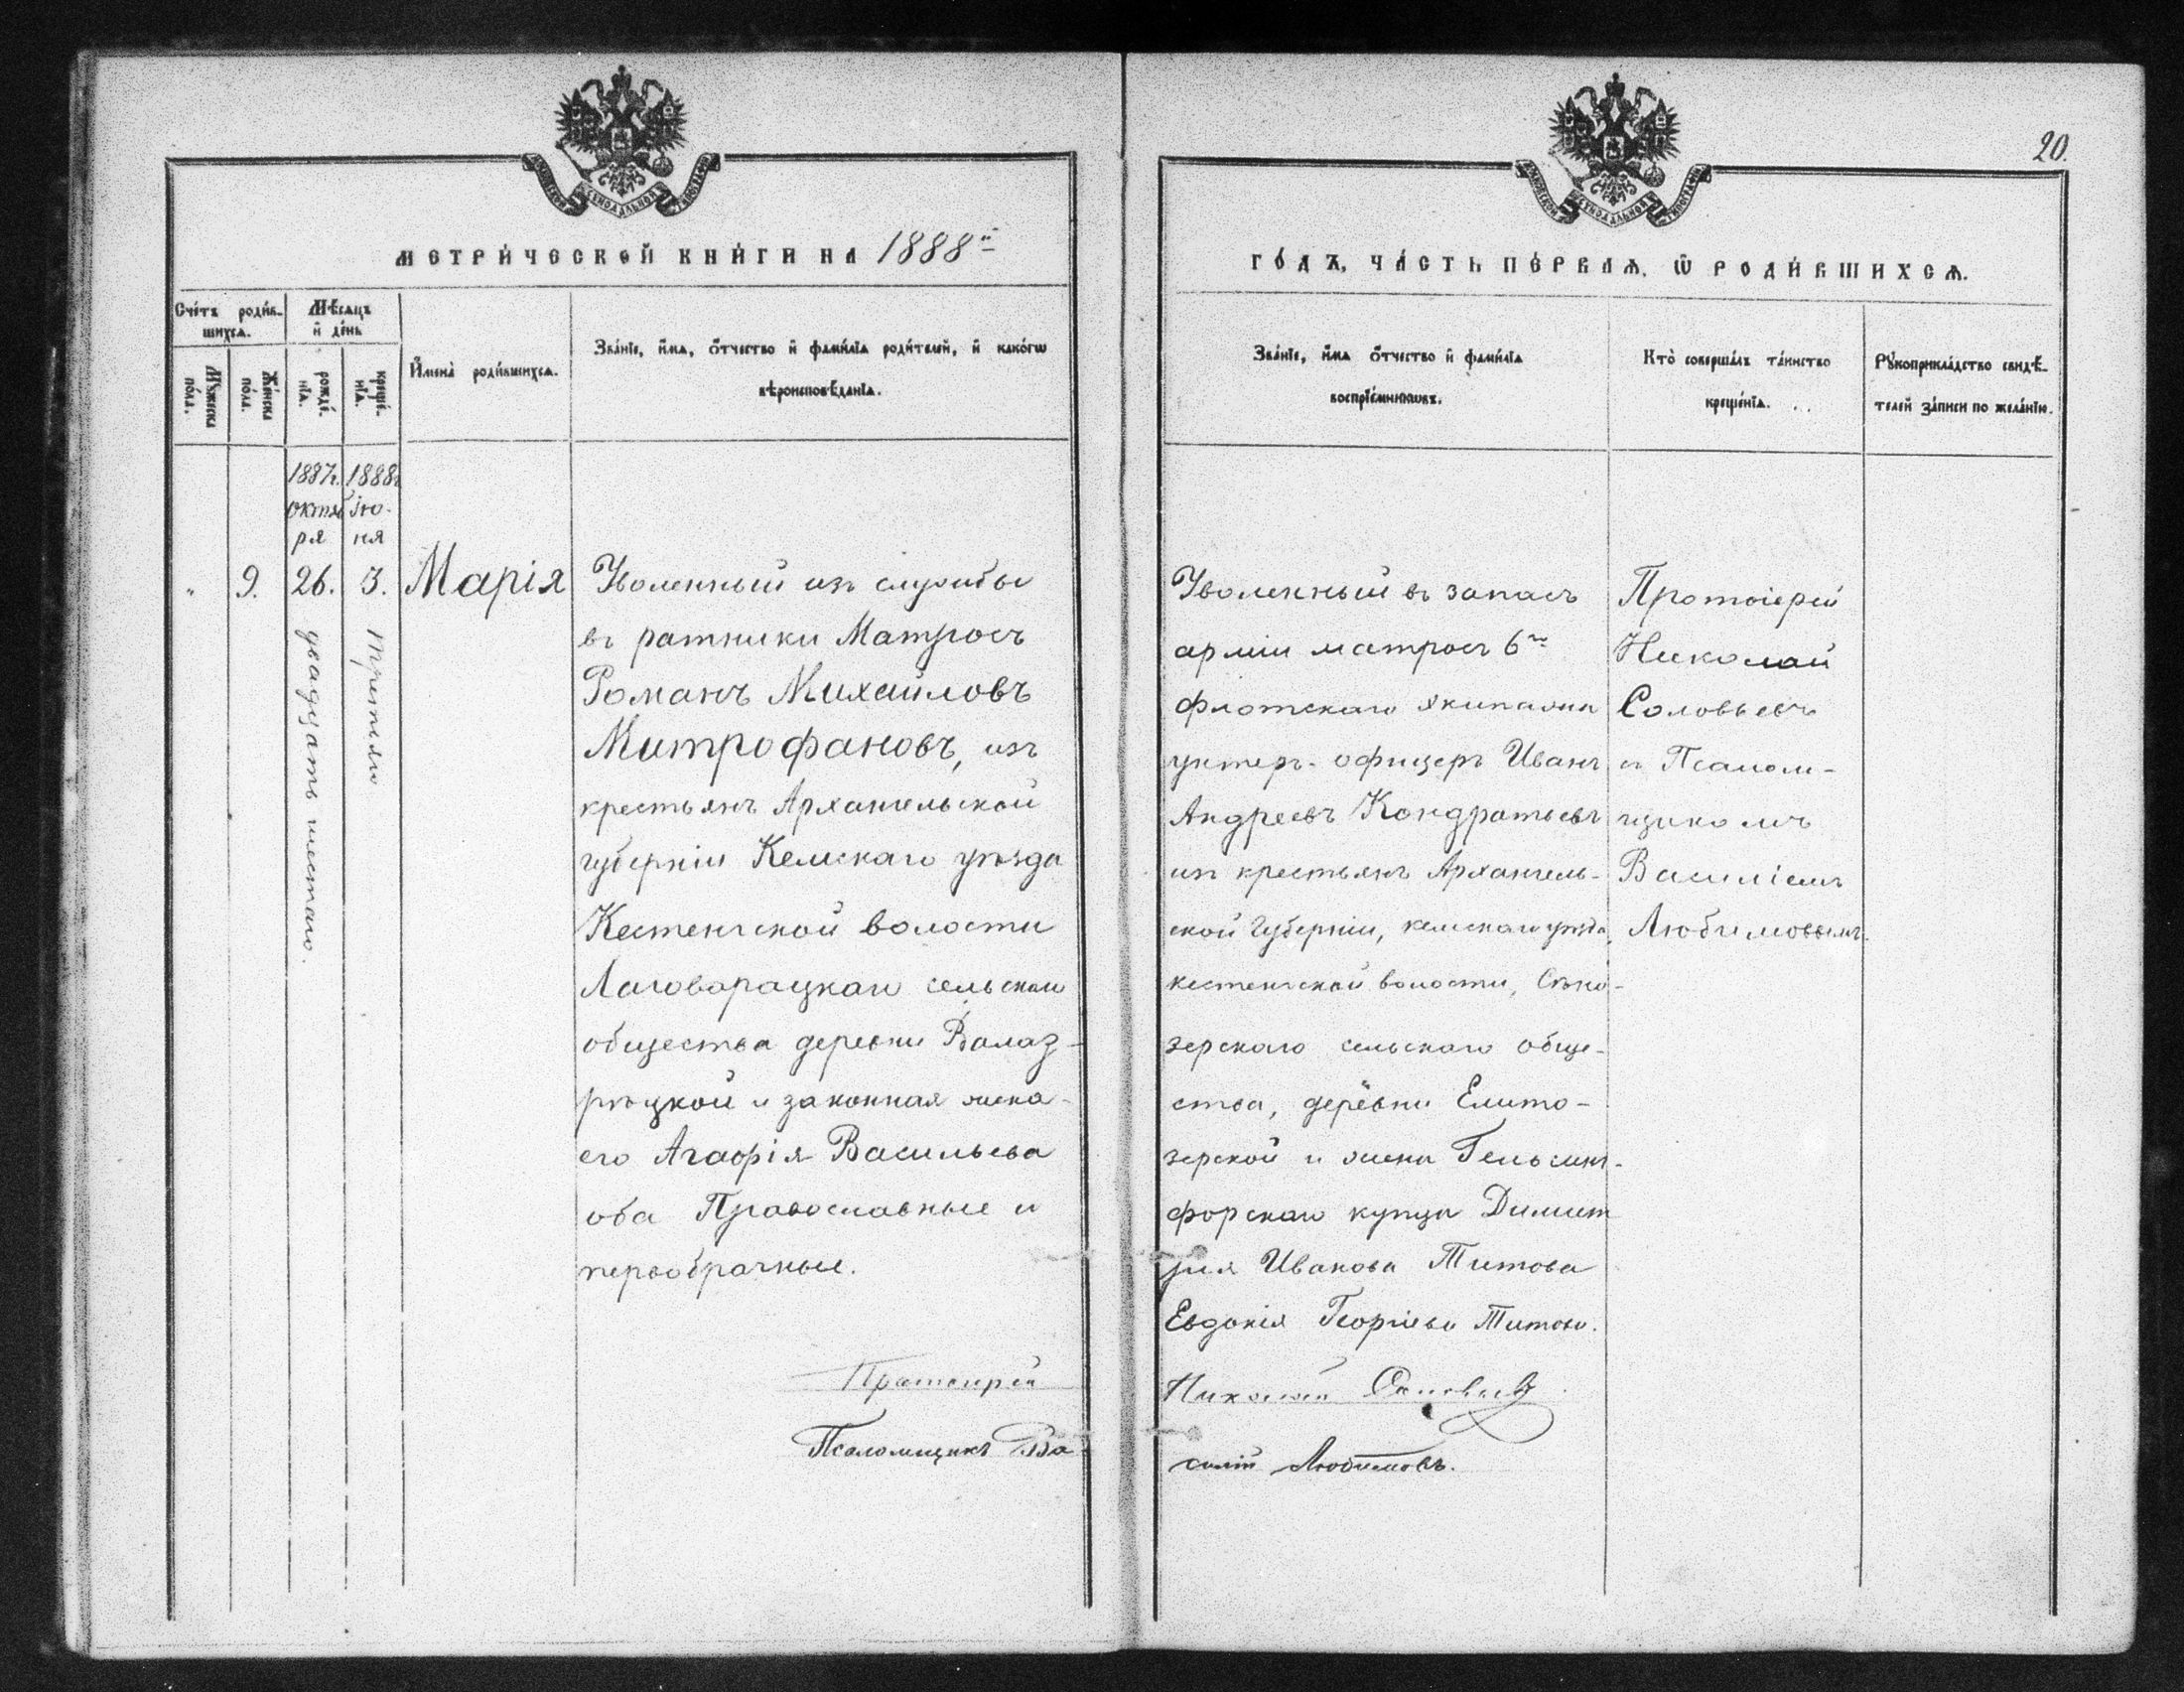 20.
МЕТРИ́ЧЕСКОЙ КНИ́ГИ НА 1888й
ГО́ДЪ, ЧА́СТЬ ПЕ́РВАѦ, Ѿ РОДИ́ВШИХСѦ.
Сче́тъ роди́в-
шихсѧ.
Му́жеска
по́ла.
Же́нска
по́ла.
Мѣ́сѧцъ
и҆ де́нь
рожде́-
нїѧ.
креще́-
нїѧ.
И҆мена̀ роди́вшихсѧ.
Зва́нїе, и҆́мѧ, ѻ҆́тчество и҆ фами́лїѧ роди́телей, и҆ како́гѡ
вѣроисповѣ́данїѧ.
Зва́нїе, и҆́мѧ ѻ҆́тчество и҆ фами́лїѧ
воспрїе́мникѡвъ.
Кто̀ соверша́лъ та́инство
креще́нїѧ.
Рꙋкоприкла́дство свидѣ́-
телей за́писи по жела́нїю.
1887г.
октяб
ря
26.
двадцать шестаго.
1888г
Ію-
ня
3.
третьяго
„ 9.
Марія
Уволенный изъ службы
въ ратники Матросъ
Романъ Михайловъ
Митрофановъ, изъ
крестьянъ Архангельской
губерніи Кемскаго уѣзда
Кестенгской волости
Лаговарацкаго сельскаго
общества деревни Валаз-
рѣцкой и законная жена
его Агафія Васильева
оба Православные и
первобрачные.
Уволенный въ запасъ
арміи матросъ 6го
флотскаго экипажа
унтеръ-офицеръ Иванъ
Андреевъ Кондратьевъ
изъ крестьянъ Архангель-
ской Губерніи, кемскаго уѣзда,
кестенгской волости,
зерскаго сельскаго обще-
ства, деревни Елито-
зерской и жена Гельсинг-
форскаго купца Димит
рія Иванова Титова
Евдокія Георгіева Титова.
Протоіерей
Николай
Соловьевъ
съ Псалом-
щикомъ
Василіемъ
Любимовымъ.
Протоіерей Николай Соловьевъ
Псаломщикъ Василій Любимовъ.